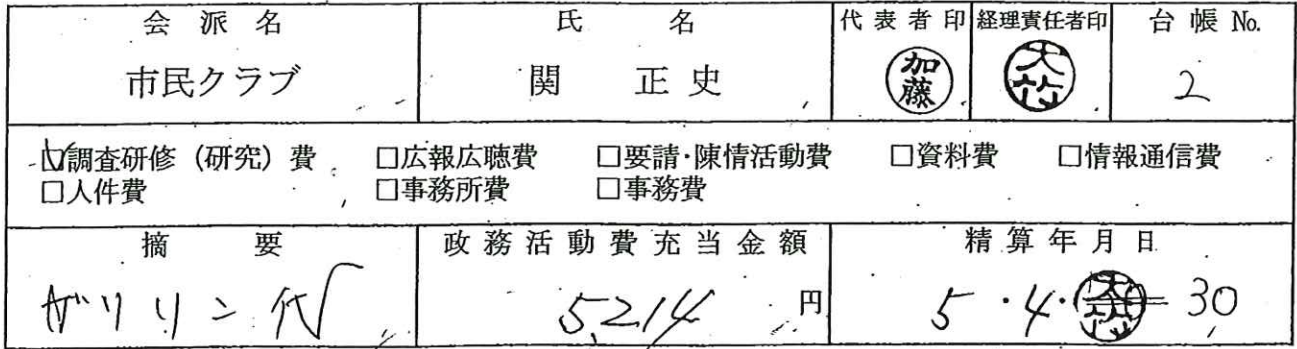 会派名 氏名 代表者印 経理責任者印 台帳No.
市民クラブ 関 正史 加藤 大竹 2
☑調査研修（研究）費 □広報広聴費 □要請・陳情活動費 □資料費 □情報通信費
□人件費 □事務所費 □事務費
摘要 政務活動費充当金額 精算年月日
ガソリン代 5,214 円 5・4・ 大竹 30